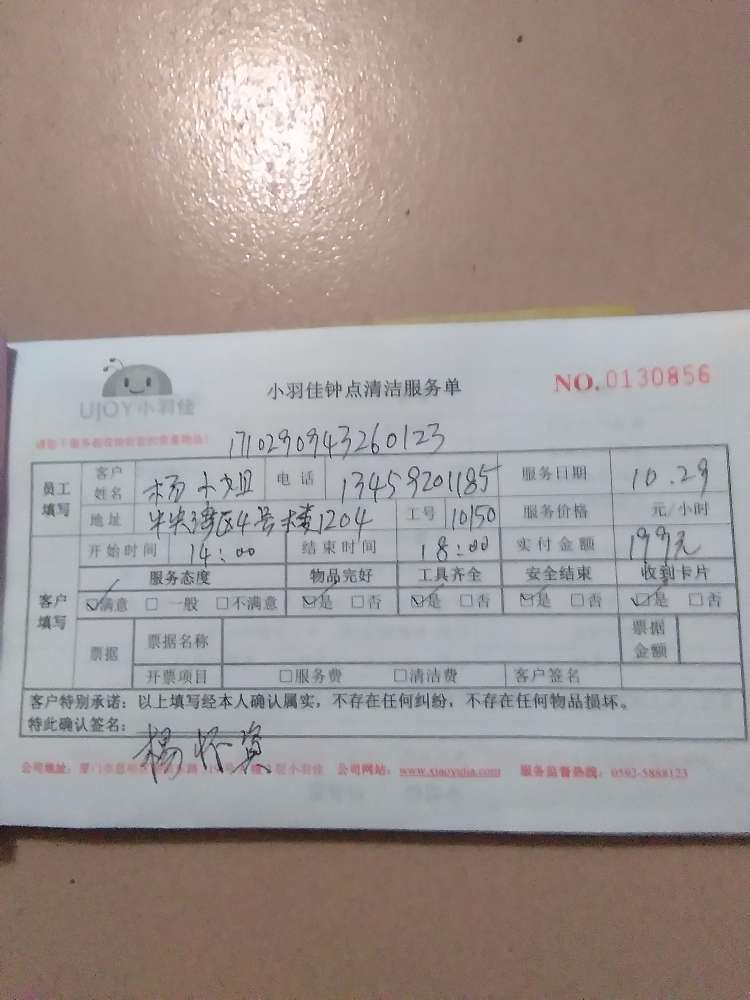 UJOY小羽佳
小羽佳钟点清洁服务单
NO.0130856
1710290943260123
员工填写 客户姓名 杨小姐 电话 13459201185 服务日期 10.29
地址 4号楼1204 工号 10150 服务价格 元/小时
开始时间 14:00 结束时间 18:00 实付金额 199元
客户填写 服务态度 物品完好 工具齐全 安全结束 收到卡片
☑满意 □一般 □不满意 ☑是 □否 ☑是 □否 ☑是 □否 ☑是 □否
票据 票据名称 票据金额
开票项目 □服务费 □清洁费 客户签名
客户特别承诺：以上填写经本人确认属实，不存在任何纠纷，不存在任何物品损坏。
特此确认签名：
楊怀
公司地址： 小羽佳 公司网站：www.xiaoyujia.com 服务监督热线：0592-5888123